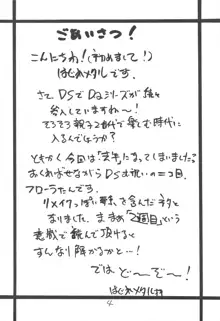 ごあいさつ!
こんにちわ!(初めまして!)
はじめメタルです。
さて DSでDQシリーズが続々
参入していますね〜!
そろそろ親子2世代で楽しむ時代に
入るんでしょうか?
ともかく今回は「去年になってしまいました。
おくればせながらDSお祝いの二コ目。
フローラたんです。
リメイクっぽい要素を含んだネタと
なりました。ま、まあ「2週目」という
意識で読んで頂けると
すんなり解かるかと…!
では ど〜ぞ〜!
はじめメタル
4